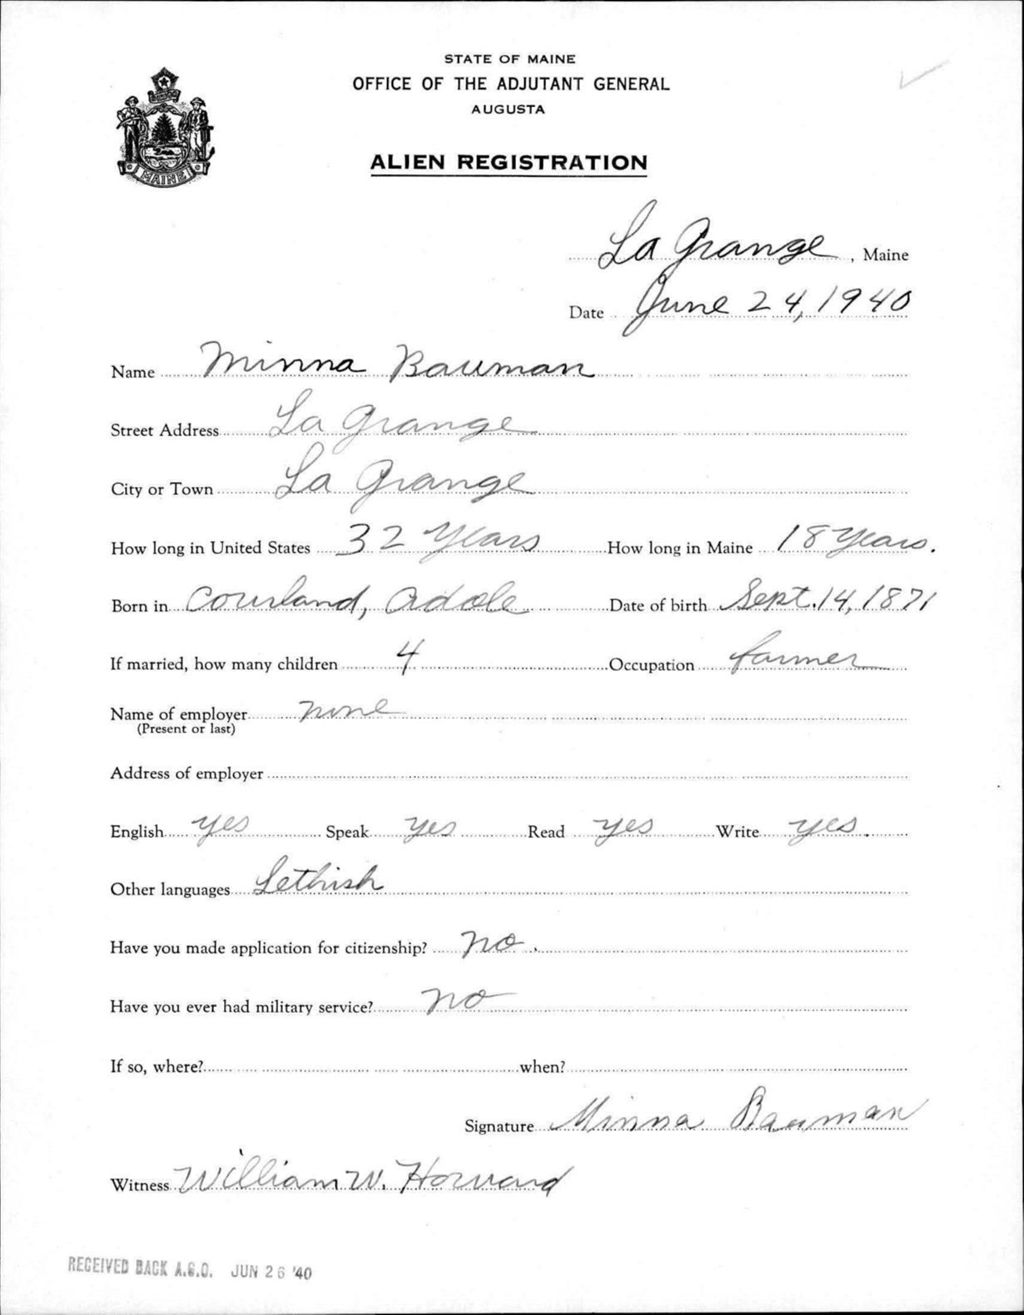 STATE OF MAINE
OFFICE OF THE ADJUTANT GENERAL
AUGUSTA
ALIEN REGISTRATION
MAINE
La Grange, Maine
Date June 24, 1940
Name Minna Bauman
Street Address La Grange
City or Town La Grange
How long in United States 32 Years How long in Maine 18 Years.
Born in Courland, Adole Date of birth Sept. 14, 1871
If married, how many children 4 Occupation farmer
Name of employer none
(Present or last)
Address of employer
English yes Speak yes Read yes Write yes.
Other languages Lethish
Have you made application for citizenship? no.
Have you ever had military service? no
If so, where? when?
Signature Minna Bauman
Witness William W. Howard
RECEIVED BACK A.G.O. JUN 26 '40